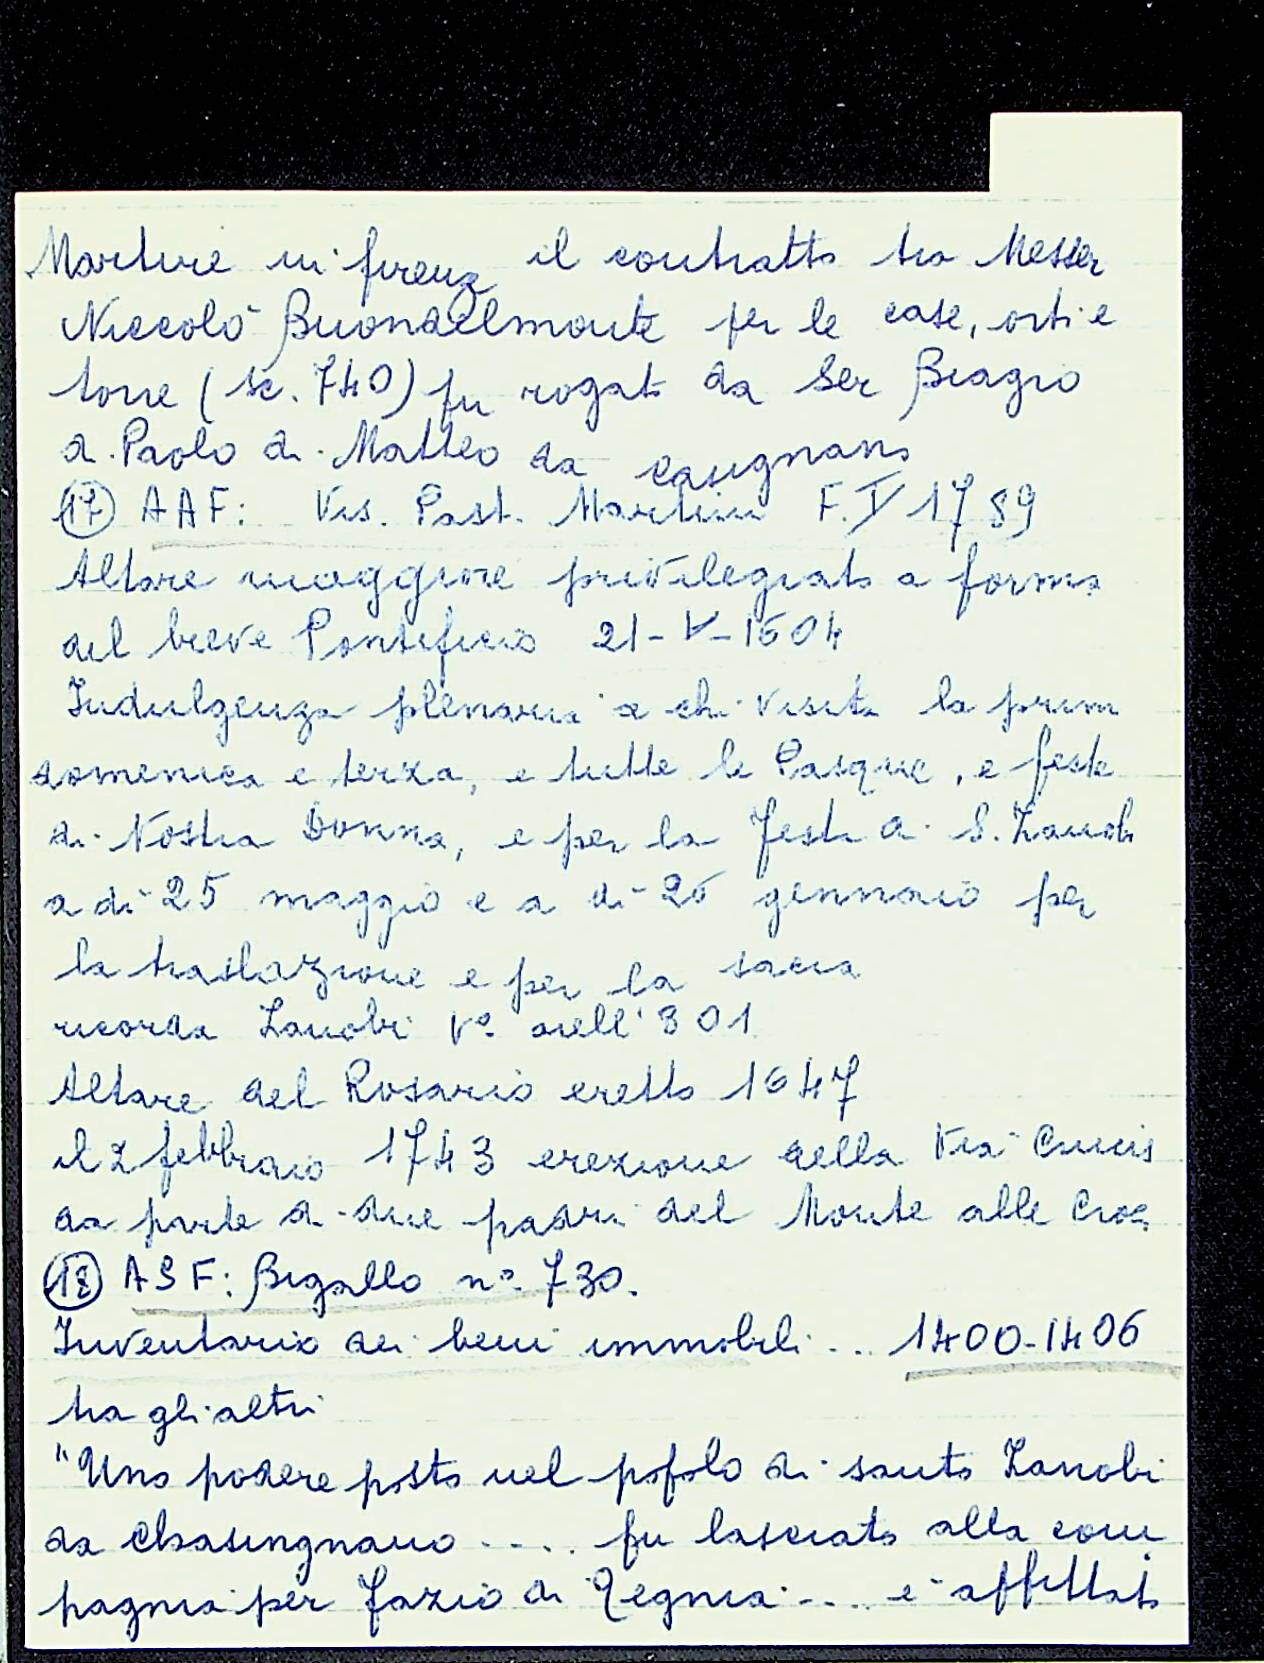 Martire in firenz il contratto tra Messer
Niccolò Buondelmonte per le case, orti e
torre (sc. 740) fu rogato da Ser Biagio
di Paolo di Matteo da casignano
(17) AAF: Vis. Past. Martini F. V 1789
Altare maggiore privilegiato a forma
del breve Pontificio 21-V-1604
Indulgenza plenaria a chi visita la prim
domenica e terza, e tutte le Pasque, e feste
di Nostra Donna, e per la festa di S. Zanobi
a dì 25 maggio e a dì 26 gennaio per
la traslazione e per la sacra
ricorda Zanobi Vo nell' 301
Altare del Rosario eretto 1647
il 2 febbraio 1743 erezione della Via Crucis
da parte di due padri del Monte alle Croci
(18) ASF: Bigallo no. 730.
Inventario dei beni immobili ... 1400-1406
tra gli altri
"Uno podere posto nel popolo di santo Zanobi
da Chasingnano .... fu lasciato alla com
pagnia per fazio di .... è affittato